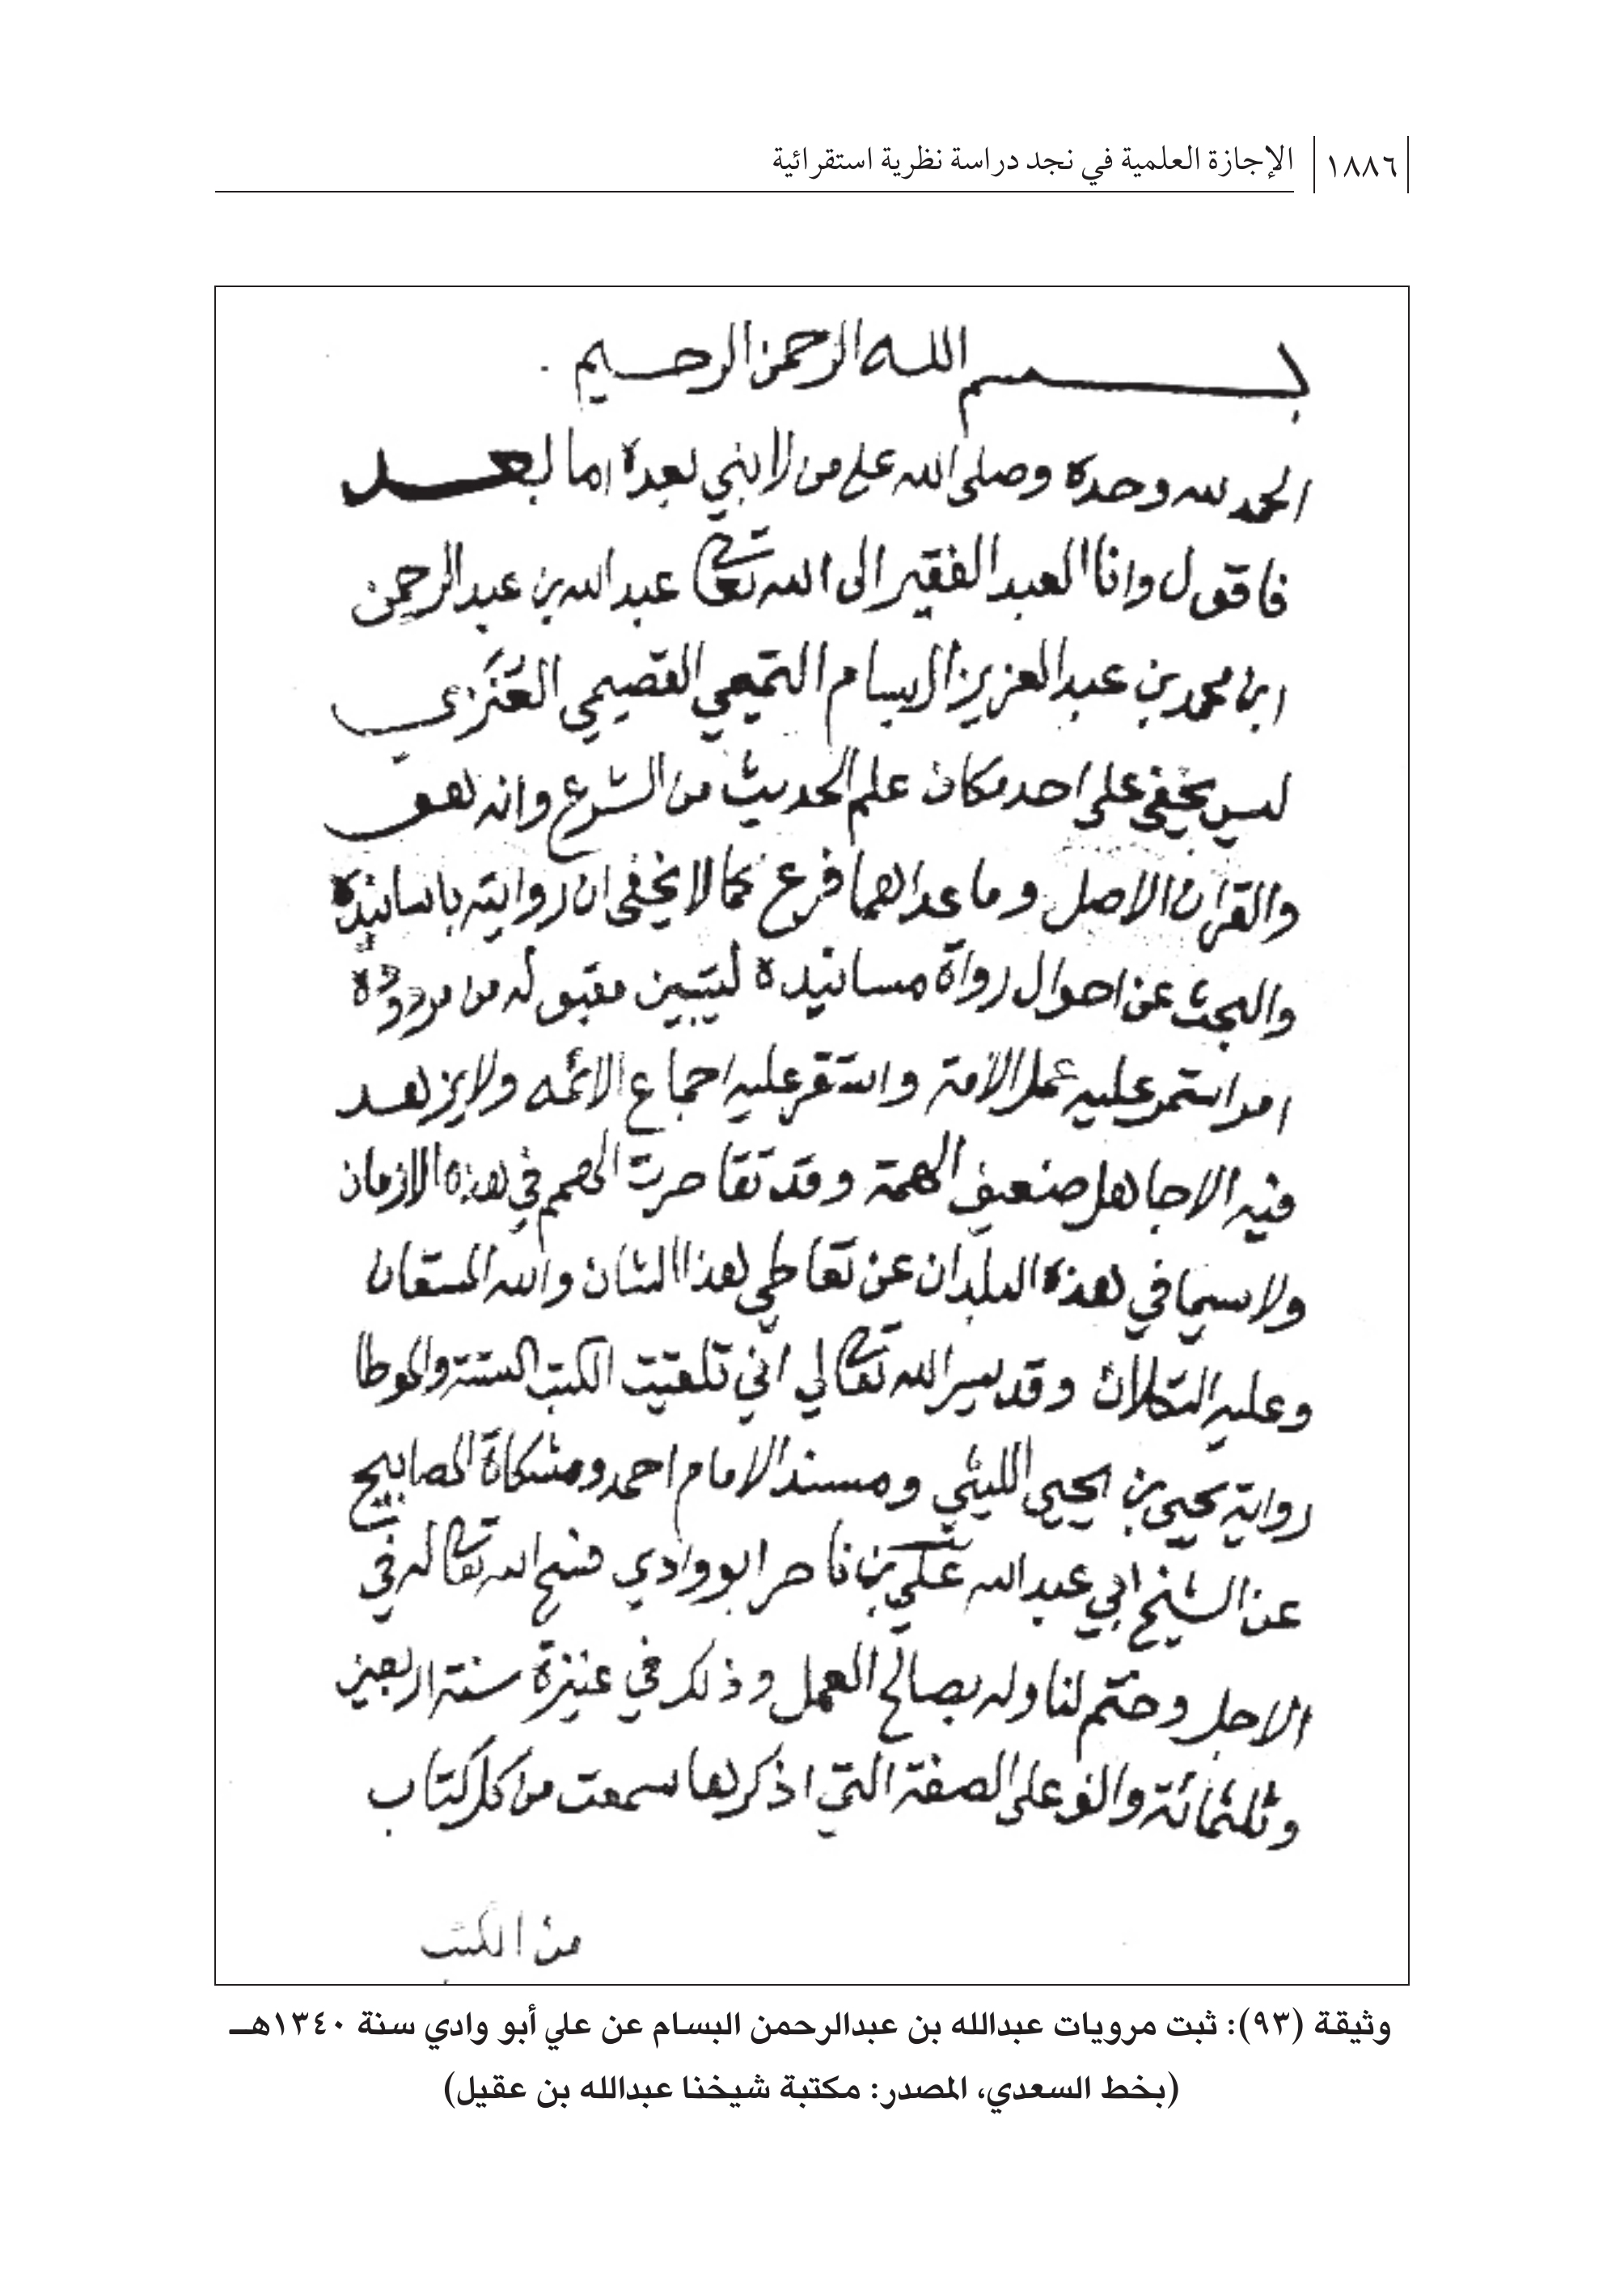 ١٨٨٦ الإجازة العلمية في نجد دراسة نظرية استقرائية
بسم الله الرحمن الرحيم
الحمد لله وحده وصلى الله على من لا نبي بعده اما بعد
فاقول وانا العبد الفقير الى الله تعالى عبد الله بن عبد الرحمن
ابن محمد بن عبد العزيز البسام التميمي القصيمي العنزي
ليس يخفى على احد مكان علم الحديث من الشرع وانه هو
والقران الاصل وما عداهما فرع كما لا يخفى ان روايته باسانيده
والبحث عن احوال رواة مسانيده ليتبين مقبوله من مردوده
امر استمر عليه عمل الامة واستقر عليه اجماع الائمه ولا يزهد
فيه الا جاهل ضعيف الهمة وقد تقاصرت الهمم في هذه الازمان
ولا سيما في هذه البلدان عن تعاطي هذا الشان والله المستعان
وعليه التكلان وقد يسر الله تعالى لي اني تلقيت الكتب الستة والموطا
رواية يحيى بن يحيى الليثي ومسند الامام احمد ومشكاة المصابيح
عن الشيخ ابي عبد الله علي بن ناصر ابو وادي فسح الله تعالى له في
الاجل وختم لنا وله بصالح العمل وذلك في عنيزة سنة اربعين
وثلثمائة والف على الصفة التي اذكرها سمعت من كل كتاب
من الكتب
وثيقة (٩٣): ثبت مرويات عبدالله بن عبدالرحمن البسام عن علي أبو وادي سنة ١٣٤٠هـ
(بخط السعدي، المصدر: مكتبة شيخنا عبدالله بن عقيل)